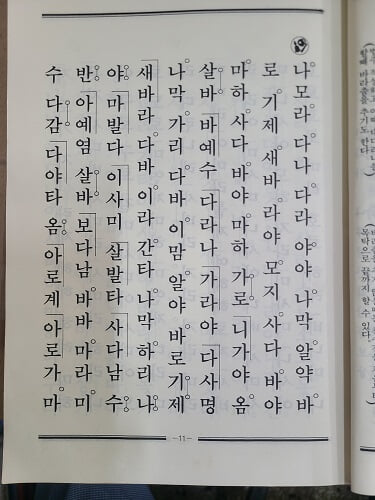 나모라 다나 다라 야야 나막 알약 바
로 기제 새바 라야 모지 사다 바야
마하 사다 바야 마하 가로 니가야 옴
살바 바예수 다라나 가라야 다사명
나막 가리 다바 이맘 알야 바로기제
새바라 다바 이라 간타 나막 하리나
야 마발다 이사미 살발타 사다남 수
반 아예염 살바 보다남 바바 마라 미
수 다감 다야타 옴 아로계 아로가 마
할때 바라춤을 추기도 한다.
목탁으로 끝까지 할 수 있다.
–11–